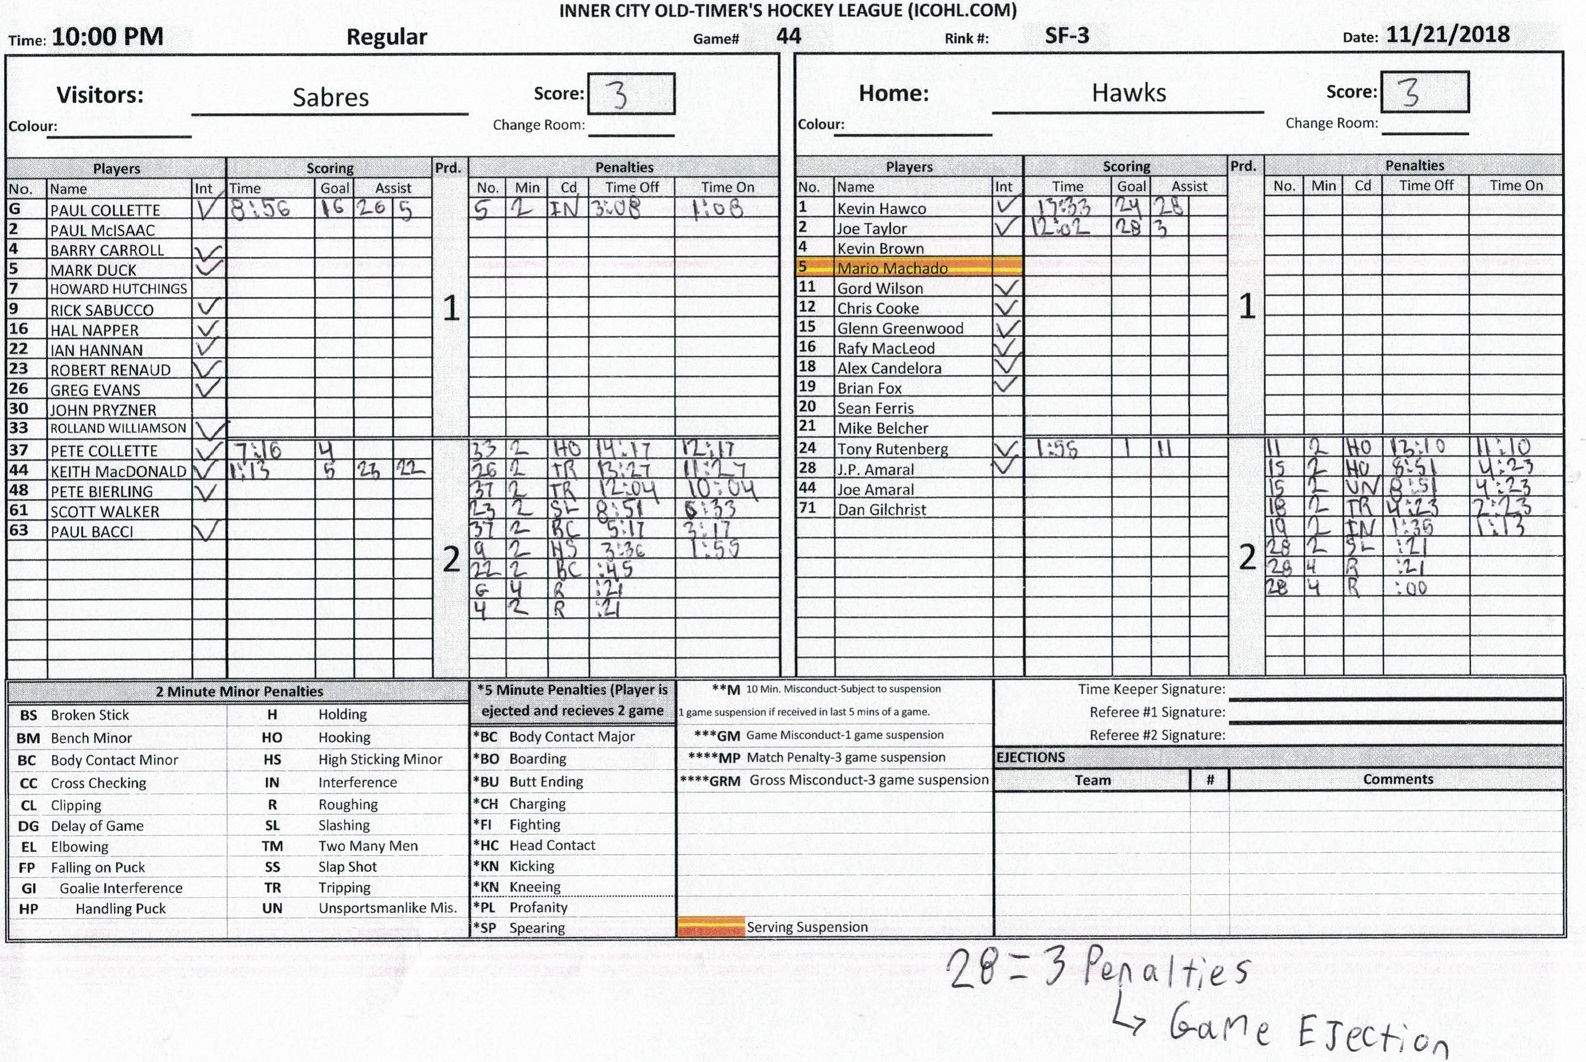 INNER CITY OLD-TIMER'S HOCKEY LEAGUE (ICOHL.COM)
Time: 10:00 PM Regular Game# 44 Rink #: SF-3 Date: 11/21/2018
Visitors: Sabres Score: 3 Home: Hawks Score: 3
Colour: Change Room: Colour: Change Room:
Players Scoring Prd. Penalties Players Scoring Prd. Penalties
No. Name Int Time Goal Assist No. Min Cd Time Off Time On No. Name Int Time Goal Assist No. Min Cd Time Off Time On
G PAUL COLLETTE ✓ 8:56 16 26 5 5 2 IN 3:08 1:08 1 Kevin Hawco ✓ 13:33 24 28
2 PAUL McISAAC 2 Joe Taylor ✓ 12:02 28 3
4 BARRY CARROLL ✓ 4 Kevin Brown
5 MARK DUCK ✓ 5 Mario Machado
7 HOWARD HUTCHINGS 11 Gord Wilson ✓
9 RICK SABUCCO ✓ 1 12 Chris Cooke ✓ 1
16 HAL NAPPER ✓ 15 Glenn Greenwood ✓
22 IAN HANNAN ✓ 16 Rafy MacLeod ✓
23 ROBERT RENAUD ✓ 18 Alex Candelora ✓
26 GREG EVANS ✓ 19 Brian Fox ✓
30 JOHN PRYZNER 20 Sean Ferris
33 ROLLAND WILLIAMSON ✓ 21 Mike Belcher
37 PETE COLLETTE ✓ 7:16 4 33 2 HO 14:17 12:17 24 Tony Rutenberg ✓ 1:55 1 11 11 2 HO 13:10 11:10
44 KEITH MacDONALD ✓ 1:13 5 23 22 26 2 TR 13:27 11:27 28 J.P. Amaral ✓ 15 2 HO 8:51 4:23
48 PETE BIERLING ✓ 37 2 TR 12:04 10:04 44 Joe Amaral 15 2 UN 8:51 4:23
61 SCOTT WALKER 23 2 SL 8:51 6:33 71 Dan Gilchrist 18 2 TR 4:23 2:23
63 PAUL BACCI ✓ 37 2 BC 5:17 3:17 19 2 IN 1:36 1:13
2 9 2 HS 3:36 1:55 2 28 2 SL :21
22 2 BC :45 28 4 R :21
G 4 R :21 28 4 R :00
4 2 R :21
2 Minute Minor Penalties *5 Minute Penalties (Player is ejected and recieves 2 game **M 10 Min. Misconduct-Subject to suspension Time Keeper Signature:
BS Broken Stick H Holding 1 game suspension if received in last 5 mins of a game. Referee #1 Signature:
BM Bench Minor HO Hooking *BC Body Contact Major ***GM Game Misconduct-1 game suspension Referee #2 Signature:
BC Body Contact Minor HS High Sticking Minor *BO Boarding ****MP Match Penalty-3 game suspension EJECTIONS
CC Cross Checking IN Interference *BU Butt Ending ****GRM Gross Misconduct-3 game suspension Team # Comments
CL Clipping R Roughing *CH Charging
DG Delay of Game SL Slashing *FI Fighting
EL Elbowing TM Two Many Men *HC Head Contact
FP Falling on Puck SS Slap Shot *KN Kicking
GI Goalie Interference TR Tripping *KN Kneeing
HP Handling Puck UN Unsportsmanlike Mis. *PL Profanity
*SP Spearing Serving Suspension
28 = 3 Penalties
↳ Game Ejection